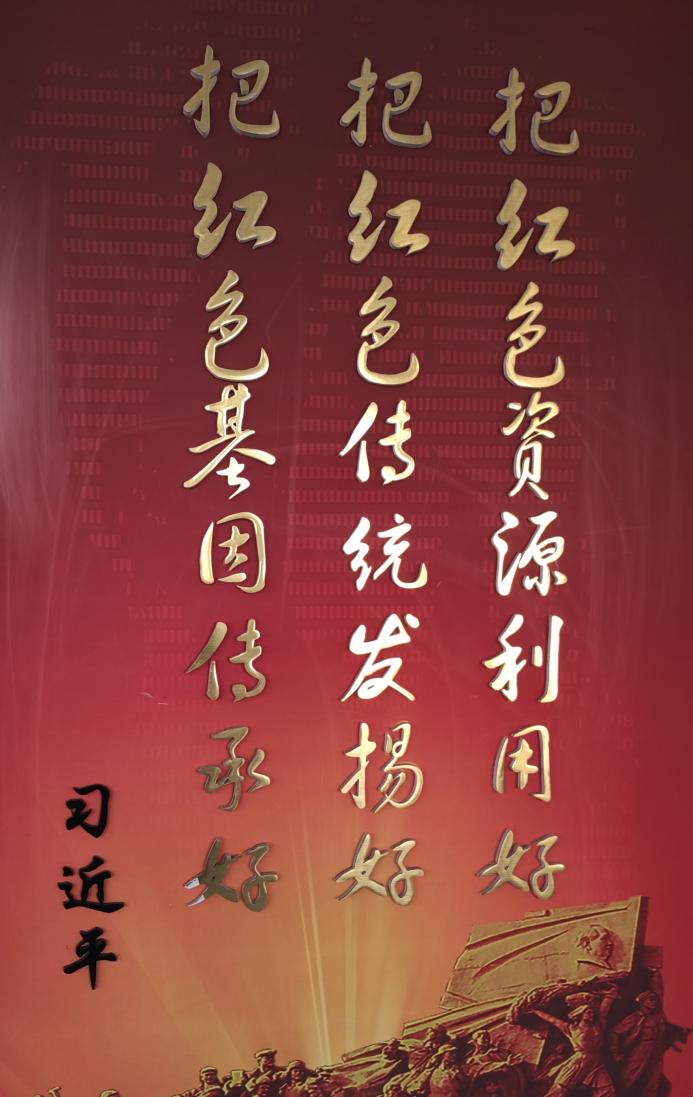 把红色資源利用好
把红色传统发揚好
把红色基因传承好
习近平